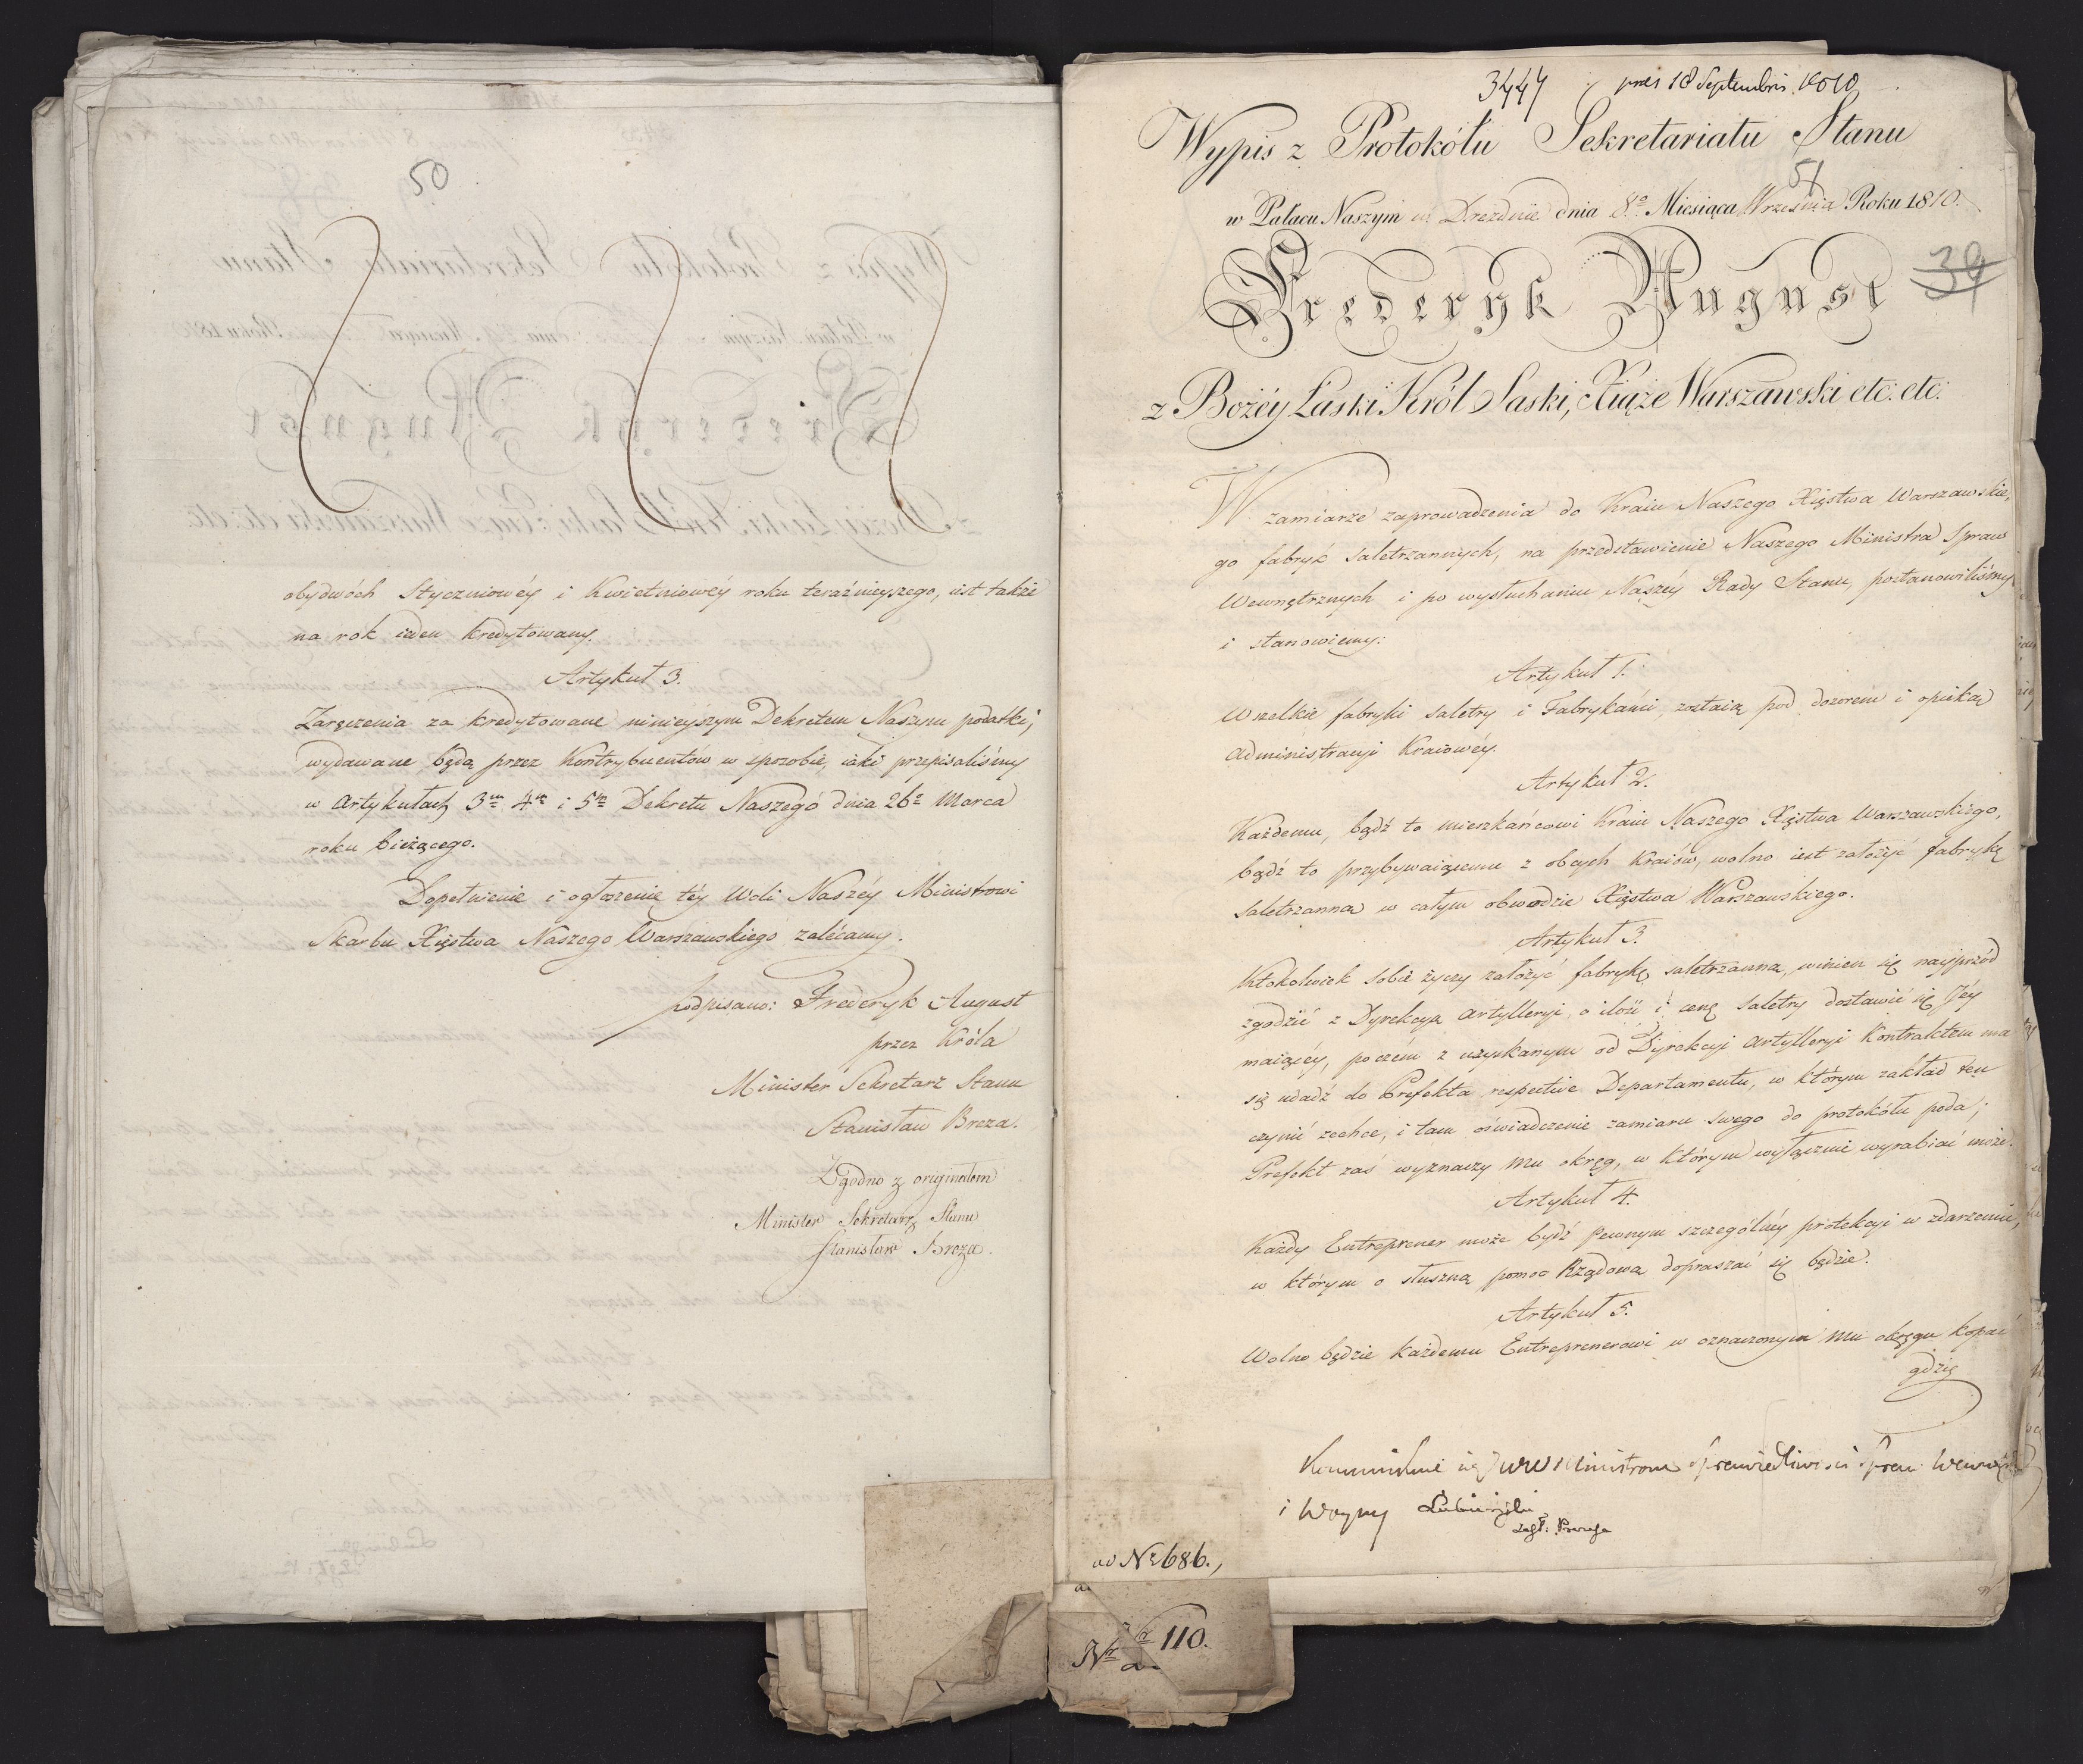 50
obydwóch Styczniowéy i Kwietniowéy roku teraźnieyszego, iest także
na rok ieden kredytowany.
Artykuł 3.
Zaręczenia za kredytowane ninieyszym Dekretem Naszym podatki,
wydawane będą przez Kontrybuentów w sposobie, iaki przepisaliśmy
w Artykułach 3m 4m i 5m Dekretu Naszego dnia 26o Marca
roku bieżącego.
Dopełnienie i ogłoszenie téy Woli Naszéy Ministrowi
Skarbu Xięstwa Naszego Warszawskiego zalécamy.
podpisano: Frederyk August
przez Króla
Minister Sekretarz Stanu
Stanisław Breza.
Zgodno z originałem
Minister Sekretarz Stanu
Stanisław Breza.
3447 pres 18 Septembris 1810
Wypis z Protokółu Sekretariatu Stanu
51
w Pałacu Naszym w Dreznie dnia 8o Miesiąca Września Roku 1810.
Frederyk August
39
z Bożéy Łaski Król Saski, Xiąże Warszawski etc: etc:
W zamiarze zaprowadzenia do Kraiu Naszego Xięstwa Warszawskie,
go fabryk saletrzannych, na przedstawienie Naszego Ministra Spraw
Wewnętrznych i po wysłuchaniu Naszéy Rady Stanu, postanowiliśmy
i stanowiemy:
Artykuł 1.
Wszelkie fabryki saletry i Fabrykańci, zostaią pod dozorem i opieką
Administracyi Kraiowéy.
Artykuł 2.
Każdemu, bądź to mieszkańcowi Kraiu Naszego Xięstwa Warszawskiego,
bądź to przybywaiącemu z obcych Kraiów, wolno iest założyć fabrykę
saletrzanną w całym obwodzie Xięstwa Warszawskiego.
Artykuł 3.
Ktokolwiek sobie życzy założyć fabrykę saletrzanną, winien się nayprzód
zgodzić z Dyrekcyą Artylleryi, o ilość i cenę saletry dostawić się Jéy
maiącéy, poczém z uzyskanym od Dyrekcyi Artylleryi Kontraktem ma
się udadź do Prefekta respective Departamentu, w którym zakład ten
czynić zechce, i tam oświadczenie zamiaru swego do protokółu poda;
Prefekt zaś wyznaczy mu okręg, w którym wyłącznie wyrabiać może.
Artykuł 4.
Każdy Entreprener może bydź pewnym szczególnéy protekcyi w zdarzeniu,
w którym o słuszną pomoc Rządową dopraszać się będzie.
Artykuł 5.
Wolno będzie każdemu Entreprenerowi w oznaczonym mu okręgu kopać
gdzie
Ministrom Sprawiedliwości Spraw Wewnę
i Woyny Łubieński
ad No 686.,
Nr 110.